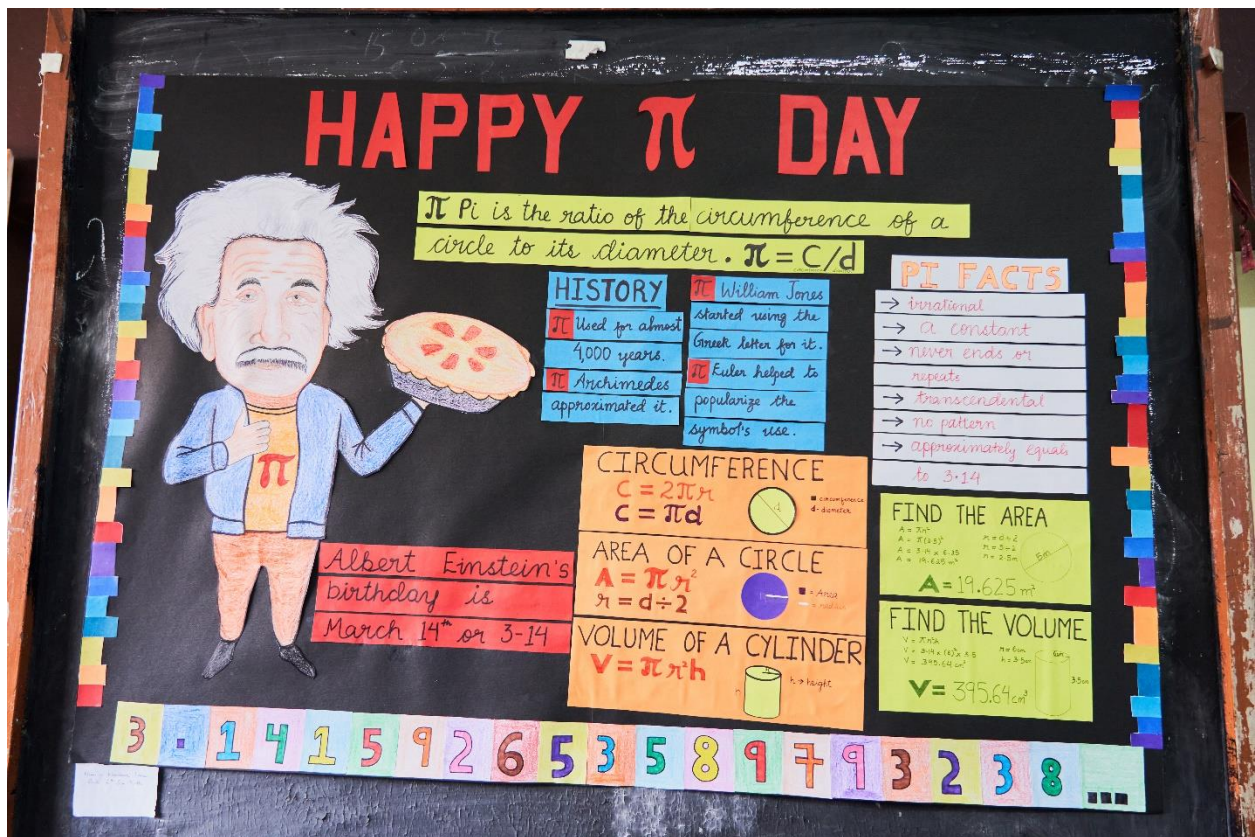 HAPPY π DAY
π Pi is the ratio of the circumference of a
circle to its diameter. π = C/d
HISTORY
π Used for almost
4,000 years.
π Archimedes
approximated it.
π William Jones
started using the
Greek letter for it.
π Euler helped to
popularize the
symbol's use.
PI FACTS
→ irrational
→ a constant
→ never ends or
repeats
→ transcendental
→ no pattern
→ approximately equals
to 3.14
π
Albert Einstein's
birthday is
March 14th or 3-14
CIRCUMFERENCE
C = 2πr
C = πd
d
circumference
d - diameter
AREA OF A CIRCLE
A = πr²
r = d÷2
= Area
= radius
VOLUME OF A CYLINDER
V = πr²h
h → height
FIND THE AREA
A = πr²
A = π(2.5)²
A = 3.14 x 6.25
A = 19.625 m²
r = d÷2
r = 5÷2
r = 2.5m
5m
A = 19.625 m²
FIND THE VOLUME
V = πr²h
V = 3.14 x (6)² x 3.5
V = 395.64 cm³
r = 6cm
h = 3.5cm
6cm
3.5cm
V = 395.64 cm³
3.141592653589793238...